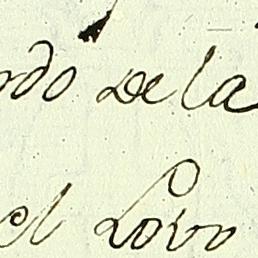 rdo de la
el Lobo